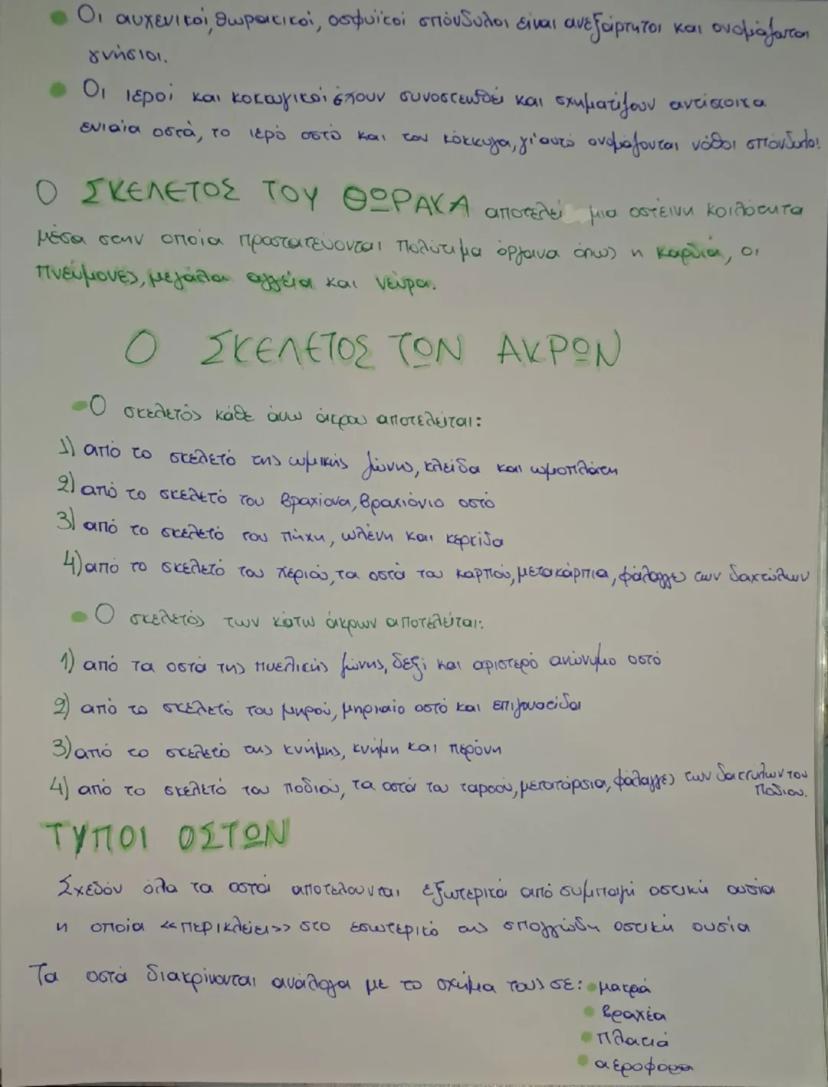 Οι αυχενικοί, θωρακικοί, οσφυϊκοί σπόνδυλοι είναι ανεξάρτητοι και ονομάζονται
γνήσιοι.
Οι ιεροί και κοκκυγικοί έχουν συνοστεωθεί και σχηματίζουν αντίστοιχα
ενιαία οστά, το ιερό οστό και τον κόκκυγα, γι'αυτό ονομάζονται νόθοι σπόνδυλοι.
Ο ΣΚΕΛΕΤΟΣ ΤΟΥ ΘΩΡΑΚΑ αποτελεί μια οστέινη κοιλότητα
μέσα στην οποία προστατεύονται πολύτιμα όργανα όπως η καρδιά, οι
πνεύμονες, μεγάλα αγγεία και νεύρα.
Ο ΣΚΕΛΕΤΟΣ ΤΩΝ ΑΚΡΩΝ
Ο σκελετός κάθε άνω άκρου αποτελείται:
1) από το σκελετό της ωμικής ζώνης, κλείδα και ωμοπλάτη
2) από το σκελετό του βραχίονα, βραχιόνιο οστό
3) από το σκελετό του πήχη, ωλένη και κερκίδα
4) από το σκελετό του χεριού, τα οστά του καρπού, μετακάρπια, φάλαγγες των δαχτύλων
Ο σκελετός των κάτω άκρων αποτελείται:
1) από τα οστά της πυελικής ζώνης, δεξί και αριστερό ανώνυμο οστό
2) από το σκελετό του μηρού, μηριαίο οστό και επιγονατίδα
3) από το σκελετό της κνήμης, κνήμη και περόνη
4) από το σκελετό του ποδιού, τα οστά του ταρσού, μετατάρσια, φάλαγγες των δακτύλων του
ποδιού.
ΤΥΠΟΙ ΟΣΤΩΝ
Σχεδόν όλα τα οστά αποτελούνται εξωτερικά από συμπαγή οστική ουσία
η οποία «περικλείει» στο εσωτερικό της σπογγώδη οστική ουσία
Τα οστά διακρίνονται ανάλογα με το σχήμα τους σε: μακρά
βραχέα
πλατιά
αεροφόρα